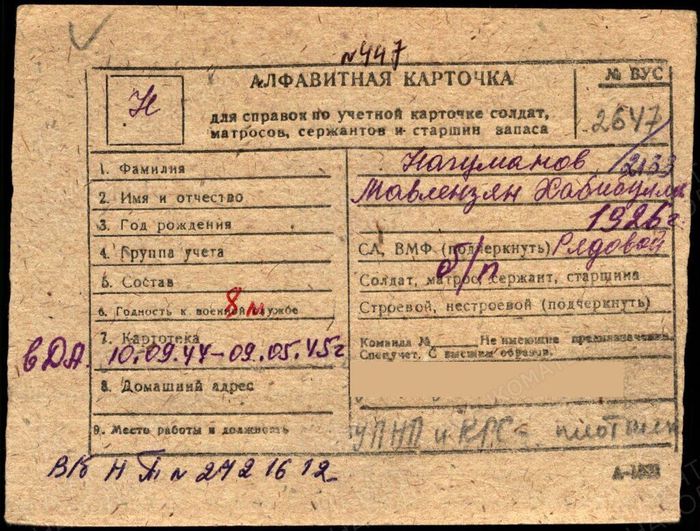 №447
АЛФАВИТНАЯ КАРТОЧКА
№ ВУС
Н
для справок по учетной карточке солдат,
матросов, сержантов и старшин запаса
2647
/2133
1. Фамилия
Нагуманов
2. Имя и отчество
Мавлензян Хабибулл
3. Год рождения
1926 г.
4. Группа учета
СА, ВМФ (подчеркнуть) Рядовой
5. Состав
Солдат, матрос, сержант, старшина
б/п
6. Годность к военной службе
Строевой, нестроевой (подчеркнуть)
7. Картотека
Команда № Не имеющие предназначения.
Спецучет. С высшим образов.
в ДА. 10.09.44-09.05.45 г
8. Домашний адрес
9. Место работы и должность
УПНП и КРС
ВБ Н № 2421612